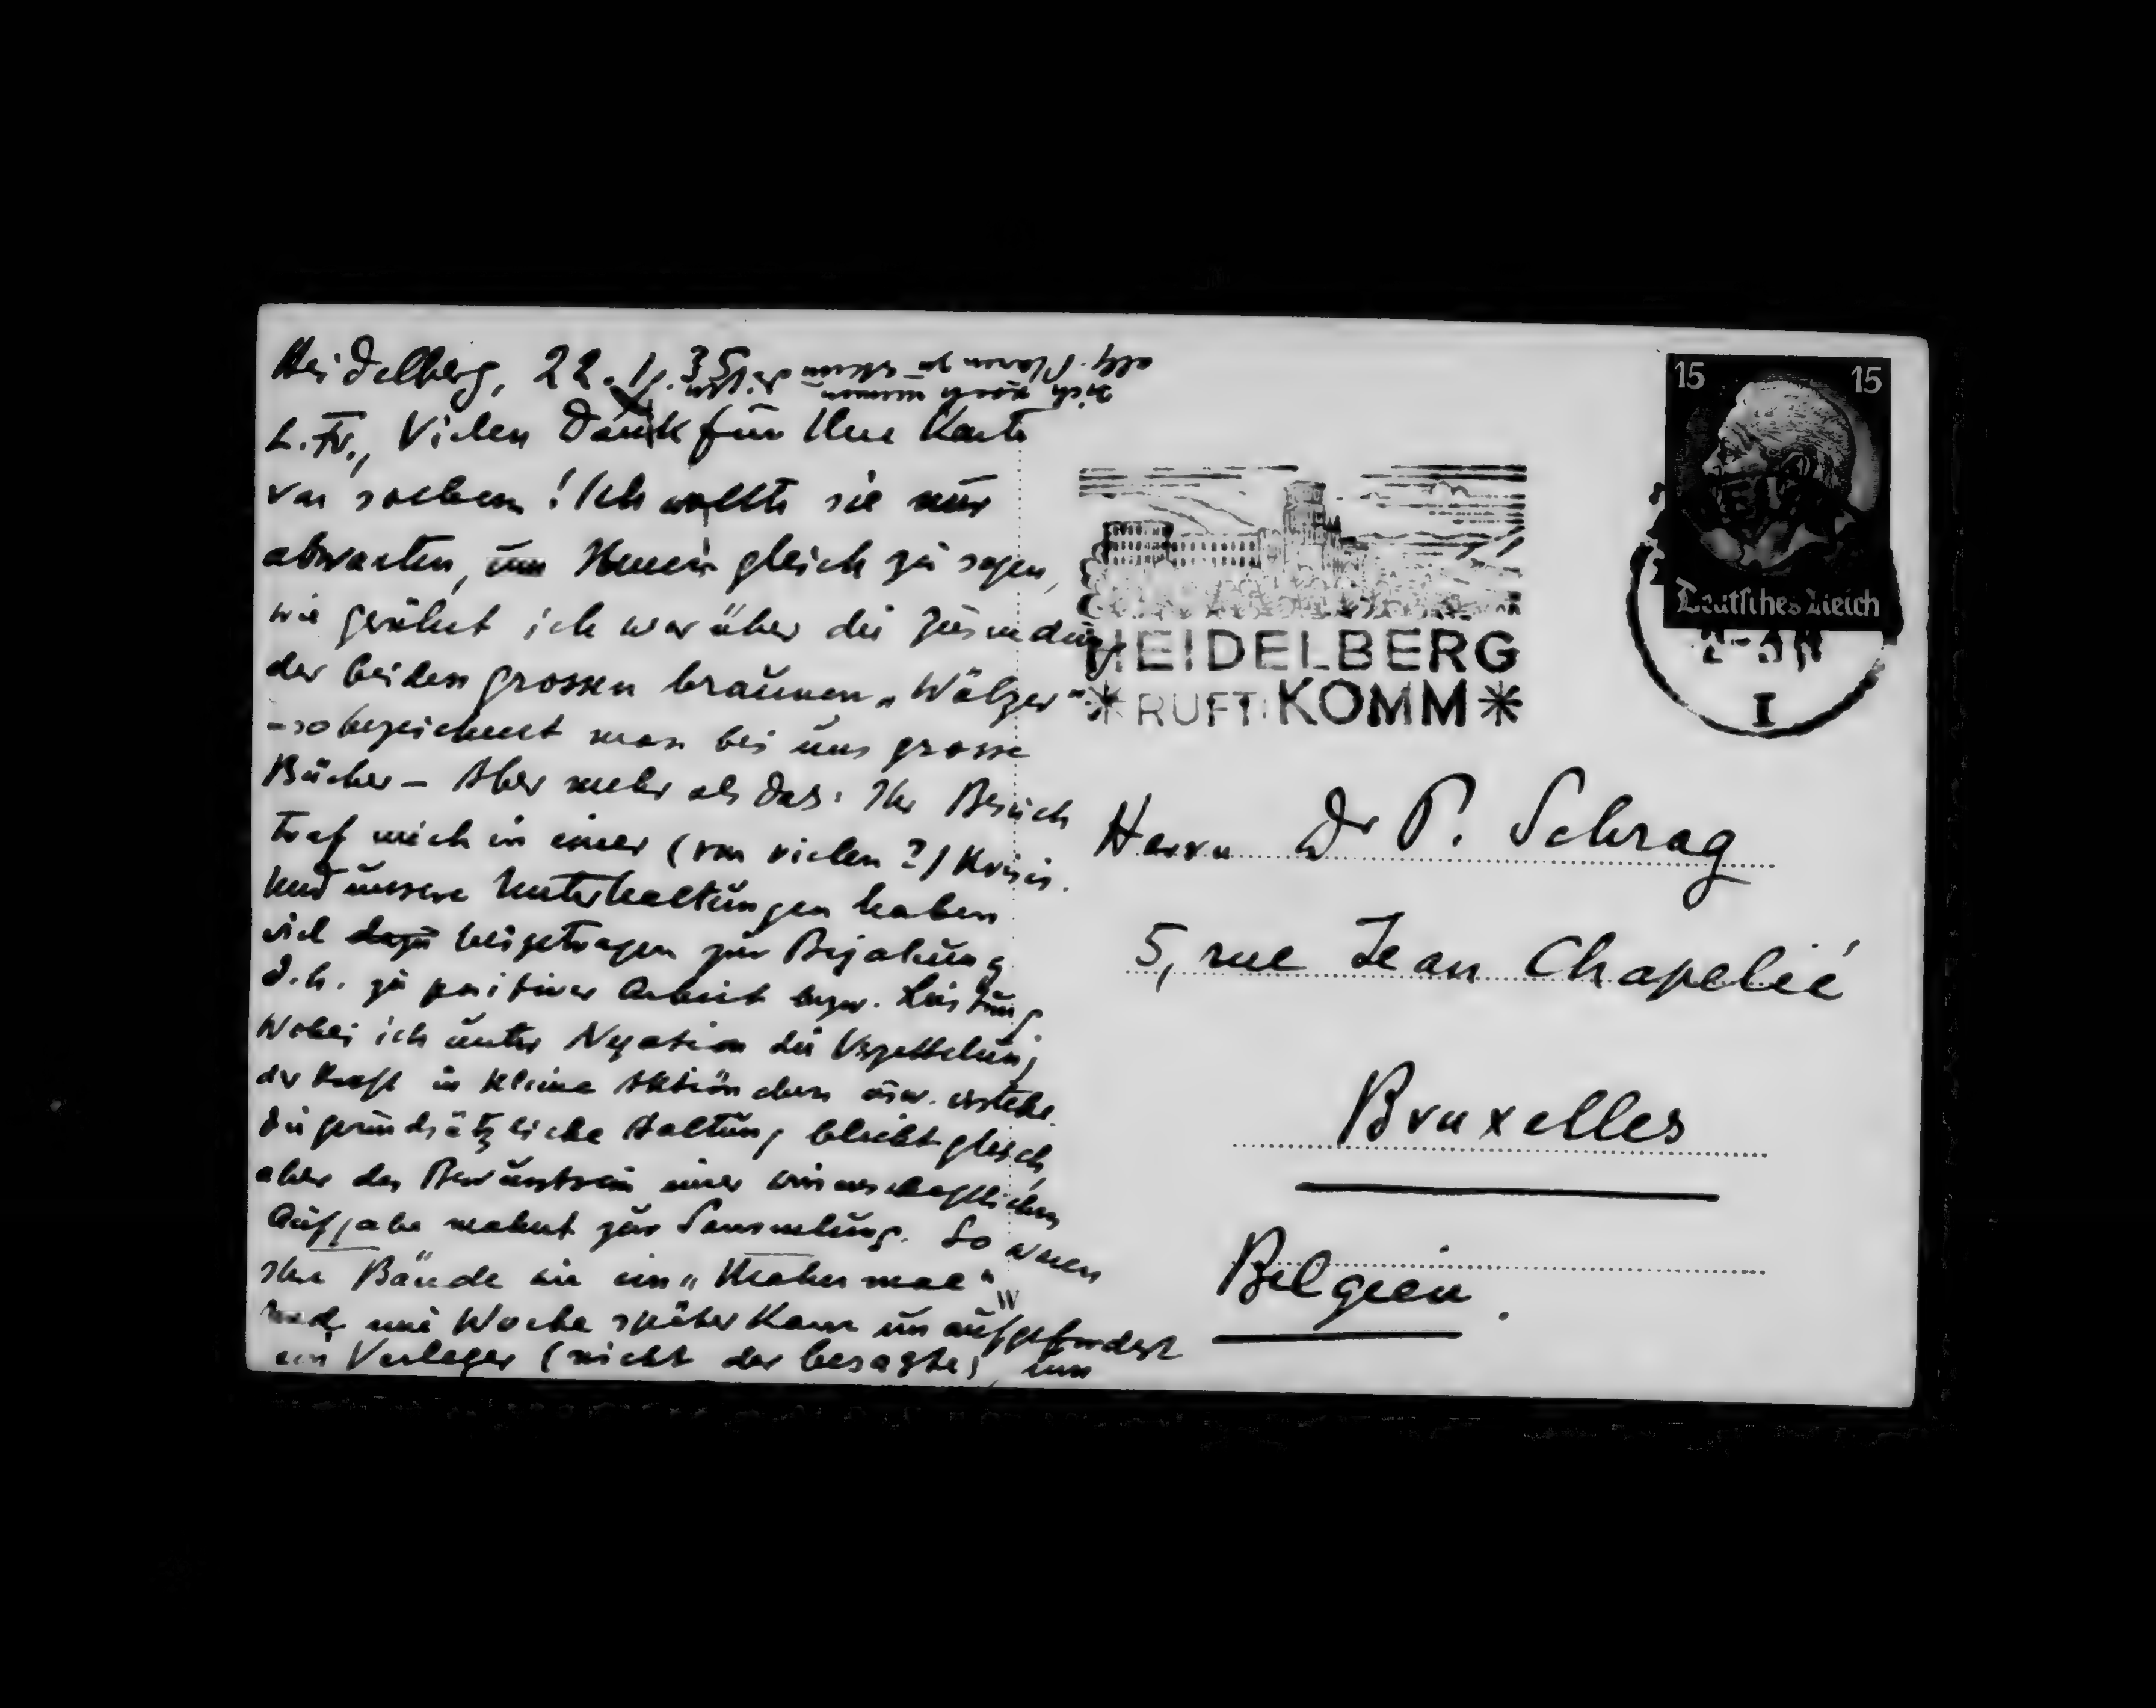 Heidelberg, 22. 11. 35
L. Fr., Vielen Dank für Ihre Karte
von soeben! Ich wollte sie nur
abwarten, um Ihnen gleich zu sagen,
wie gerührt ich war über die Zusendung
der beiden grossen braunen „Wälzer"
- so bezeichnet man bei uns grosse
Bücher - Aber mehr als das: Ihr Besuch
traf mich in einer (von vielen?) Krisis.
Und unsere Unterhaltungen haben
viel dazu beigetragen zur Bejahung
d.h. zu positiver Arbeit bzw. Leistung
Wobei ich unter Negation die Verzettelung
der Kraft in kleine Aktiönchen usw. verstehe.
Die grundsätzliche Haltung bleibt gleich,
aber das Bewusstsein einer wissenschaftlichen
Aufgabe mahnt zur Sammlung. So waren
Ihre Bände wie ein „Mahnmal"
Und eine Woche später kam unaufgefordert
ein Verleger (nicht der besagte) um
15 15
Deutsches Reich
I
HEIDELBERG
* RUFT: KOMM *
Herrn Dr P. Schrag
5, rue Jean Chapelié
Bruxelles
Belgien.